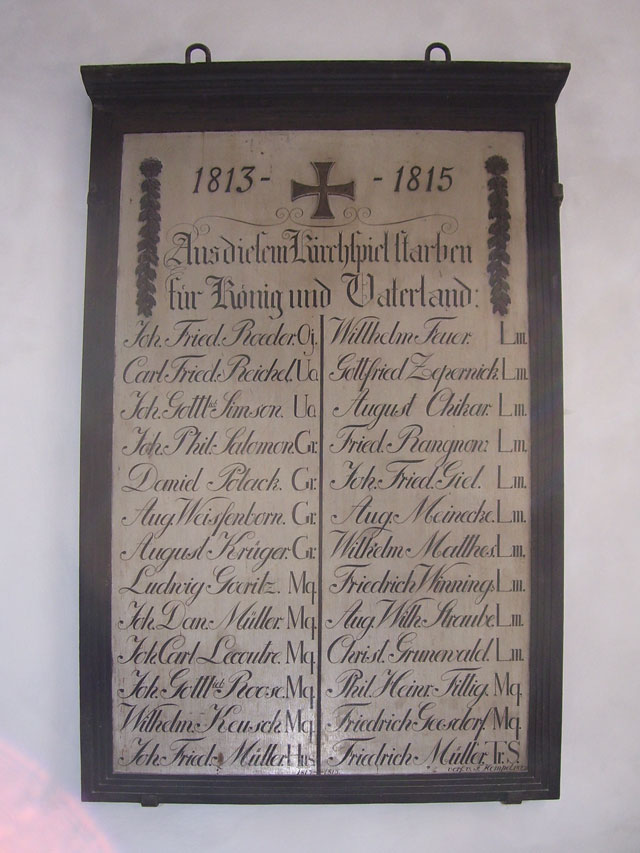 1813- - 1815
Aus diesem Kirchspiel starben
für König und Vaterland:
Joh. Fried. Roeder. Oj.
Carl Fried. Reichel. Uo.
Joh. Gottl<sup>ieb</sup> Simson. Uo.
Joh. Phil. Salomon. Gr.
Daniel Polack. Gr.
Aug. Weissenborn. Gr.
August Krüger. Gr.
Ludwig Goeritz. Mq.
Joh. Dan. Müller. Mq.
Joh. Carl Lecoutre. Mq.
Joh. Gottl<sup>ieb</sup> Roose. Mq.
Wilhelm Keusch. Mq.
Joh. Fried. Müller Hus.
Willhelm Feuer. Lm.
Gottfried Zepernick. Lm.
August Chikar. Lm.
Fried. Rangnon: Lm.
Joh. Fried. Giel. Lm.
Aug. Meinecke. Lm.
Wilhelm Matthes. Lm.
Friedrich Winning. Lm.
Aug. Wilh. Straube. Lm.
Christ. Grunewald. Lm.
Phil. Heinr. Fittig. Mq.
Friedrich Geesdorf Mq.
Friedrich Müller. Tr. S.
1813-1815